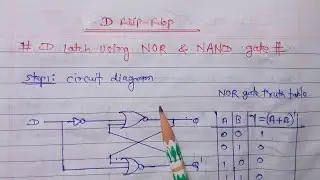 D flip-flop
# D latch using NOR & NAND gate #
step1: circuit diagram
NOR gate truth table
D
A B Y=(A+B)
0 0 1
0 1 0
1 0 0
1 1 0